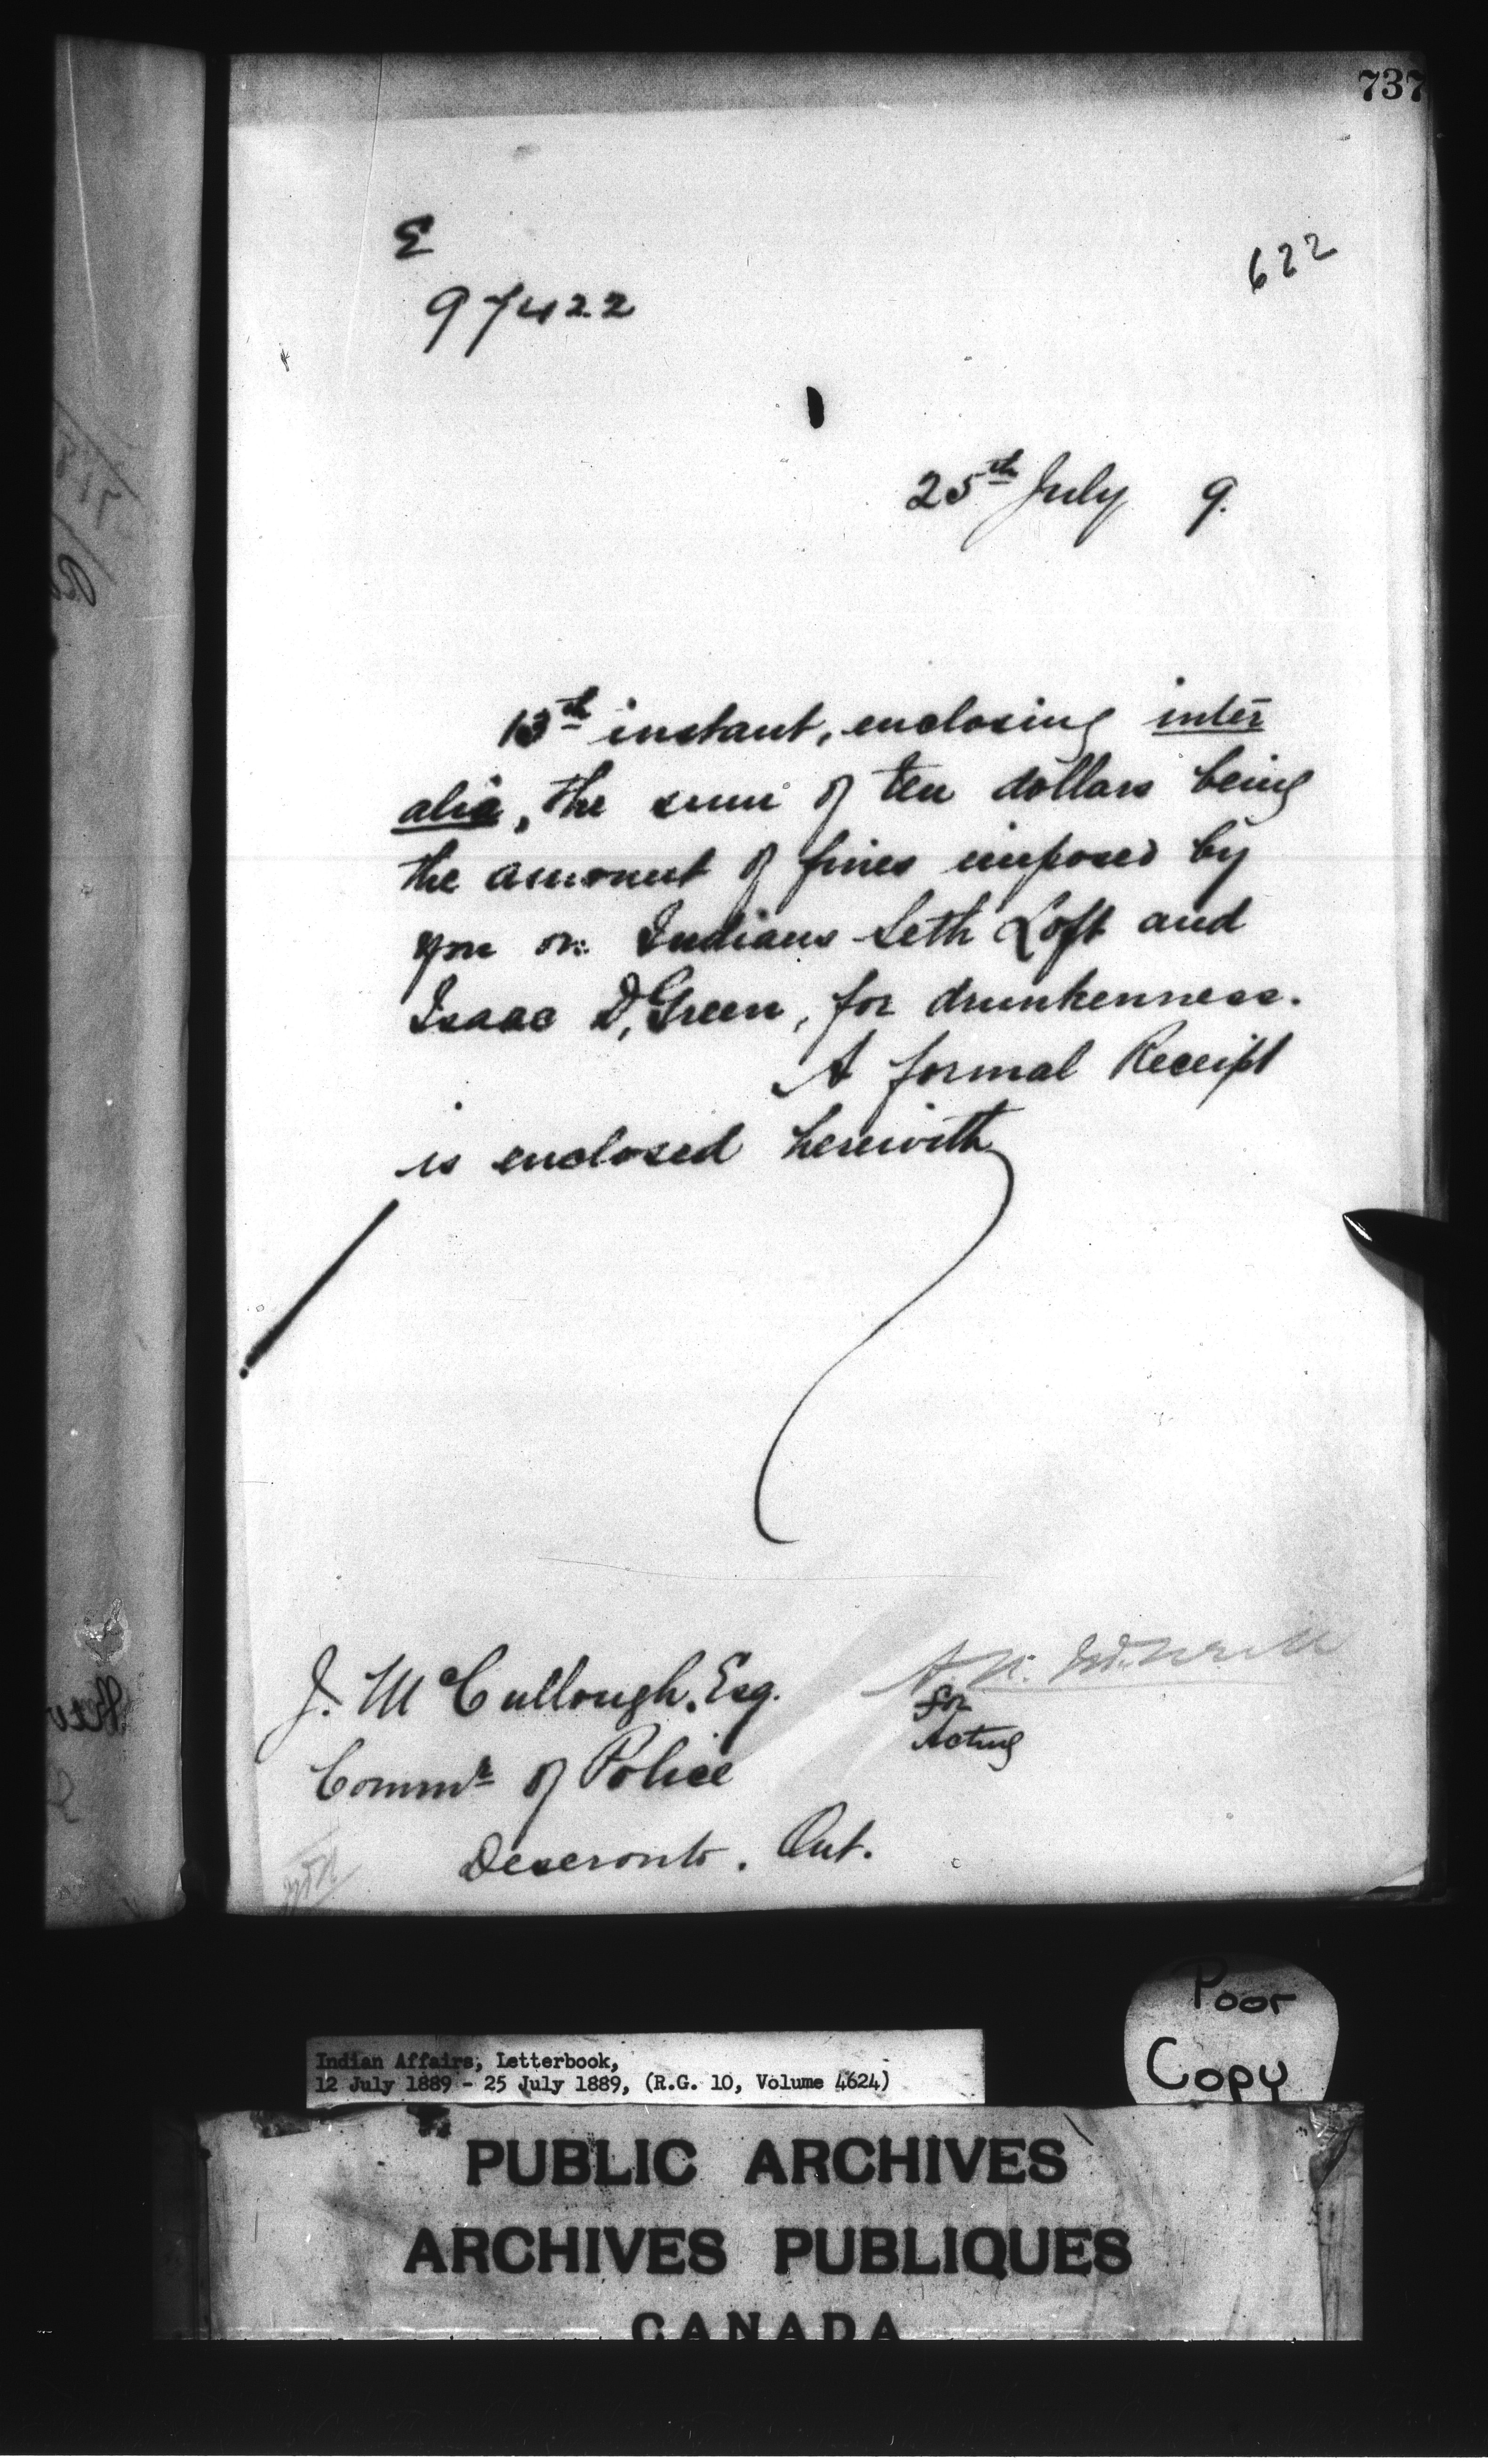 737
E
97422
622
25th July 9.
13th instant, enclosing inter
alia, the sum of ten dollars being
the amount of fines imposed by
you on Indians Seth Loft and
Isaac D. Green, for drunkenness.
A formal Receipt
is enclosed herewith
J. McCullough. Esq.
for
Acting
Commr of Police
Deseronto. Ont.
Poor
Copy
Indian Affairs, Letterbook,
12 July 1889 - 25 July 1889, (R.G. 10, Volume 4624)
PUBLIC ARCHIVES
ARCHIVES PUBLIQUES
CANADA